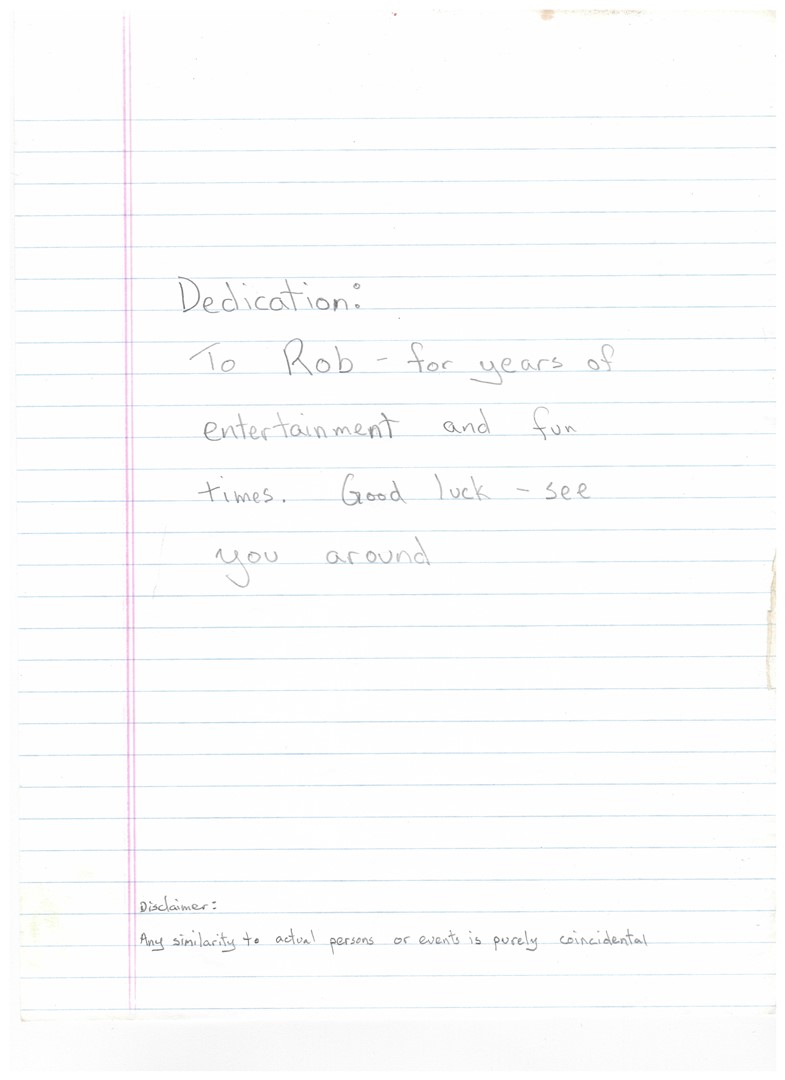 Dedication:
To Rob - for years of
entertainment and fun
times. Good luck - see
you around
Disclaimer:
Any similarity to actual persons or events is purely coincidental